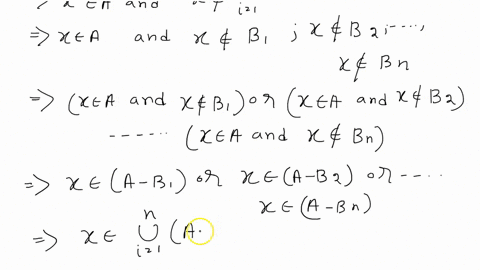 x∈A and
i=1
=> x∈A and x∉B1 ; x∉B2, ----,
x∉Bn
=> (x∈A and x∉B1) or (x∈A and x∉B2)
------ (x∈A and x∉Bn)
=> x∈(A-B1) or x∈(A-B2) or ----
x∈(A-Bn)
=> x∈ n∪i=1 (A-